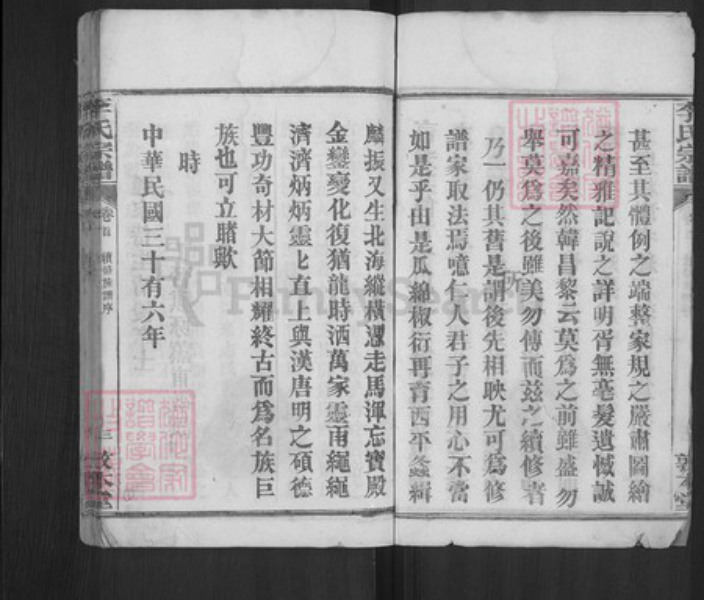 甚至其體例之端整家規之嚴肅圖繪
之精雅記說之詳明胥無毫髮遺憾誠
可嘉矣然韓昌黎云莫為之前雖盛勿
舉莫為之後雖美勿傳而茲之續修者
乃一仍其舊是謂後先相映尤可為修
譜家取法焉噫仁人君子之用心不當
如是乎由是瓜綿椒衍再育西平螽緝
麟振又生北海縱橫憑走馬渾忘寶殿
金鑾變化復猶龍時洒萬家靈雨繩繩
濟濟炳炳靈七直上與漢唐明之碩德
豐功奇材大節相耀終古而為名族巨
族也可立睹歟
時
中華民國三十有六年
李氏宗譜
卷首
續修族譜序
三
敦本堂
FamilySearch